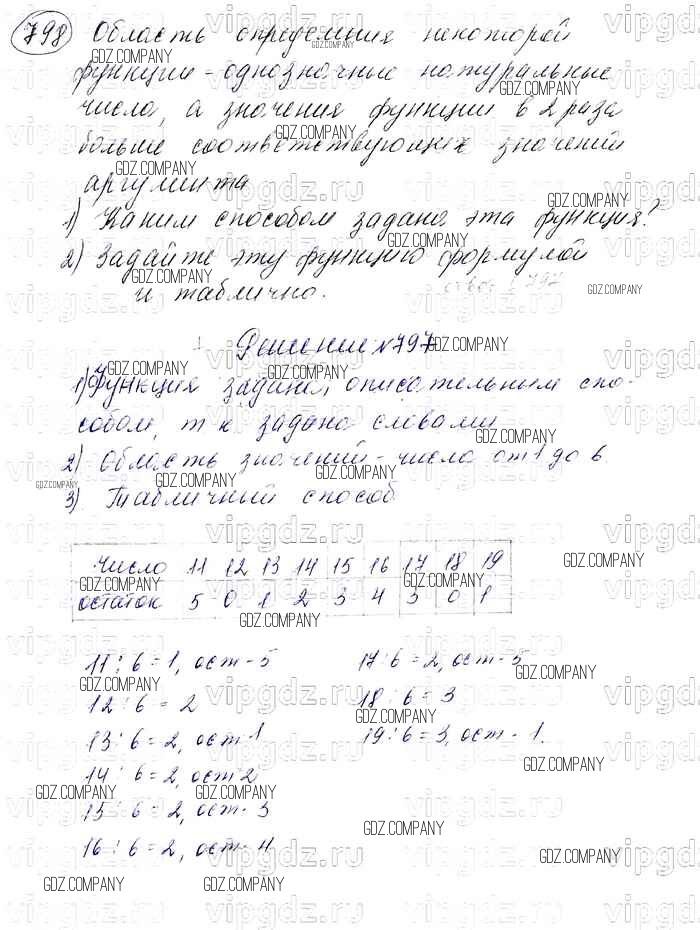 798 Область определения некоторой
функции - однозначные натуральные
числа, а значения функции в 2 раза
больше соответствующих значений
аргумента
1) Каким способом задана эта функция?
2) Задайте эту функцию формулой
и таблично.
Решение №797
1) Функция задана, описательным спо-
собом, т к задана словами
2) Область значений - числа от 1 до 6
3) Табличный способ
число 11 12 13 14 15 16 17 18 19
остаток 5 0 1 2 3 4 5 0 1
11 : 6 = 1, ост - 5 17 : 6 = 2, ост - 5
12 : 6 = 2 18 : 6 = 3
13 : 6 = 2, ост 1 19 : 6 = 3, ост - 1.
14 : 6 = 2, ост 2
15 : 6 = 2, ост - 3
16 : 6 = 2, ост - 4
vipgdz.ru
GDZ.COMPANY